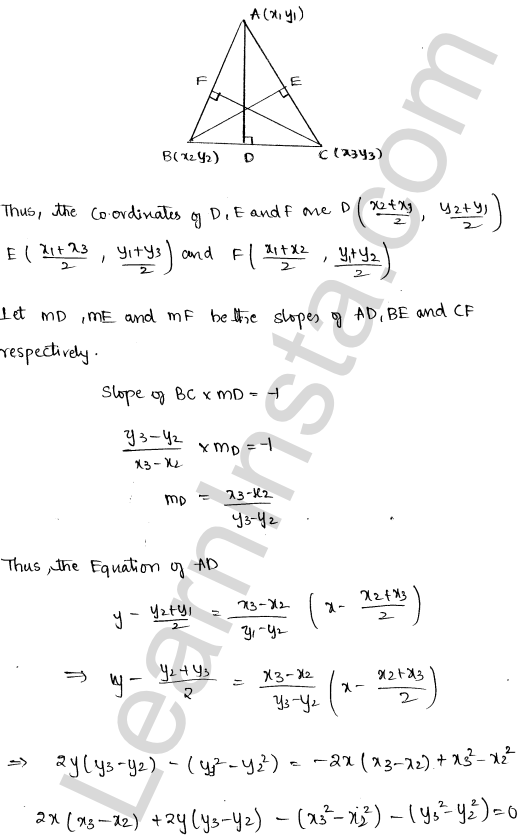 A (x1 y1)
F
E
B (x2 y2)
D
C (x3 y3)
Thus, the co-ordinates of D, E and F are D ( x2+x3/2 , y2+y1/2 )
E ( x1+x3/2 , y1+y3/2 ) and F ( x1+x2/2 , y1+y2/2 )
Let mD , mE and mF be the slopes of AD, BE and CF
respectively.
Slope of BC × mD = -1
y3-y2/x3-x2 × mD = -1
mD = x3-x2/y3-y2
Thus, the Equation of AD
y - y2+y1/2 = x3-x2/y1-y2 ( x - x2+x3/2 )
⇒ y - y2+y3/2 = x3-x2/y3-y2 ( x - x2+x3/2 )
⇒ 2y(y3-y2) - (y3²-y2²) = -2x(x3-x2) + x3²-x2²
2x(x3-x2) + 2y(y3-y2) - (x3²-x2²) - (y3²-y2²) = 0
LearnInsta.com